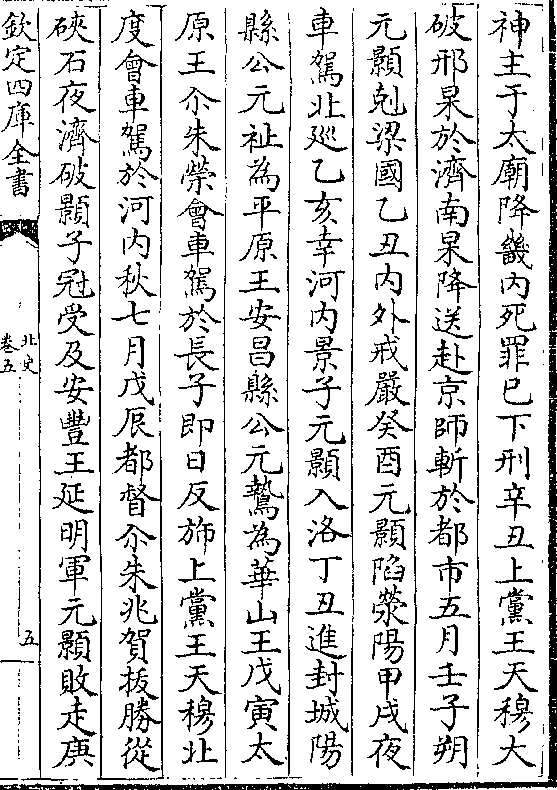 神主于太廟降畿内死罪已下刑辛丑上黨王天穆大
破邢杲於濟南杲降送赴京師斬於都市五月壬子朔
元顥剋梁國乙丑内外戒嚴癸酉元顥陷滎陽甲戌夜
車駕北廵乙亥幸河内景子元顥入洛丁丑進封城陽
縣公元祉為平原王安昌縣公元鷙為華山王戊寅太
原王尒朱榮會車駕於長子即日反斾上黨王天穆北
度會車駕於河内秋七月戊辰都督尒朱兆賀拔勝從
硤石夜濟破顥子冠受及安豐王延明軍元顥敗走庚
欽定四庫全書
北史
卷五
五